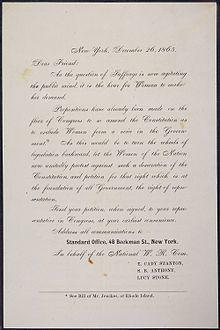 New-York, December 26, 1865.
Dear Friend:
As the question of Suffrage is now agitating
the public mind, it is the hour for Woman to make
her demand.
Propositions have already been made on the
floor of Congress to so amend the Constitution as
to exclude Women from a voice in the Govern-
ment.* As this would be to turn the wheels of
legislation backward, let the Women of the Nation
now unitedly protest against such a desecration of the
Constitution, and petition for that right which is at
the foundation of all Government, the right of repre-
sentation.
Send your petition, when signed, to your repre-
sentative in Congress, at your earliest convenience.
Address all communications to
Standard Office, 48 Beekman St., New York.
In behalf of the National W. R. Com.
E. CADY STANTON,
S. B. ANTHONY,
LUCY STONE.
* See Bill of Mr. Jenckes, of Rhode Island.